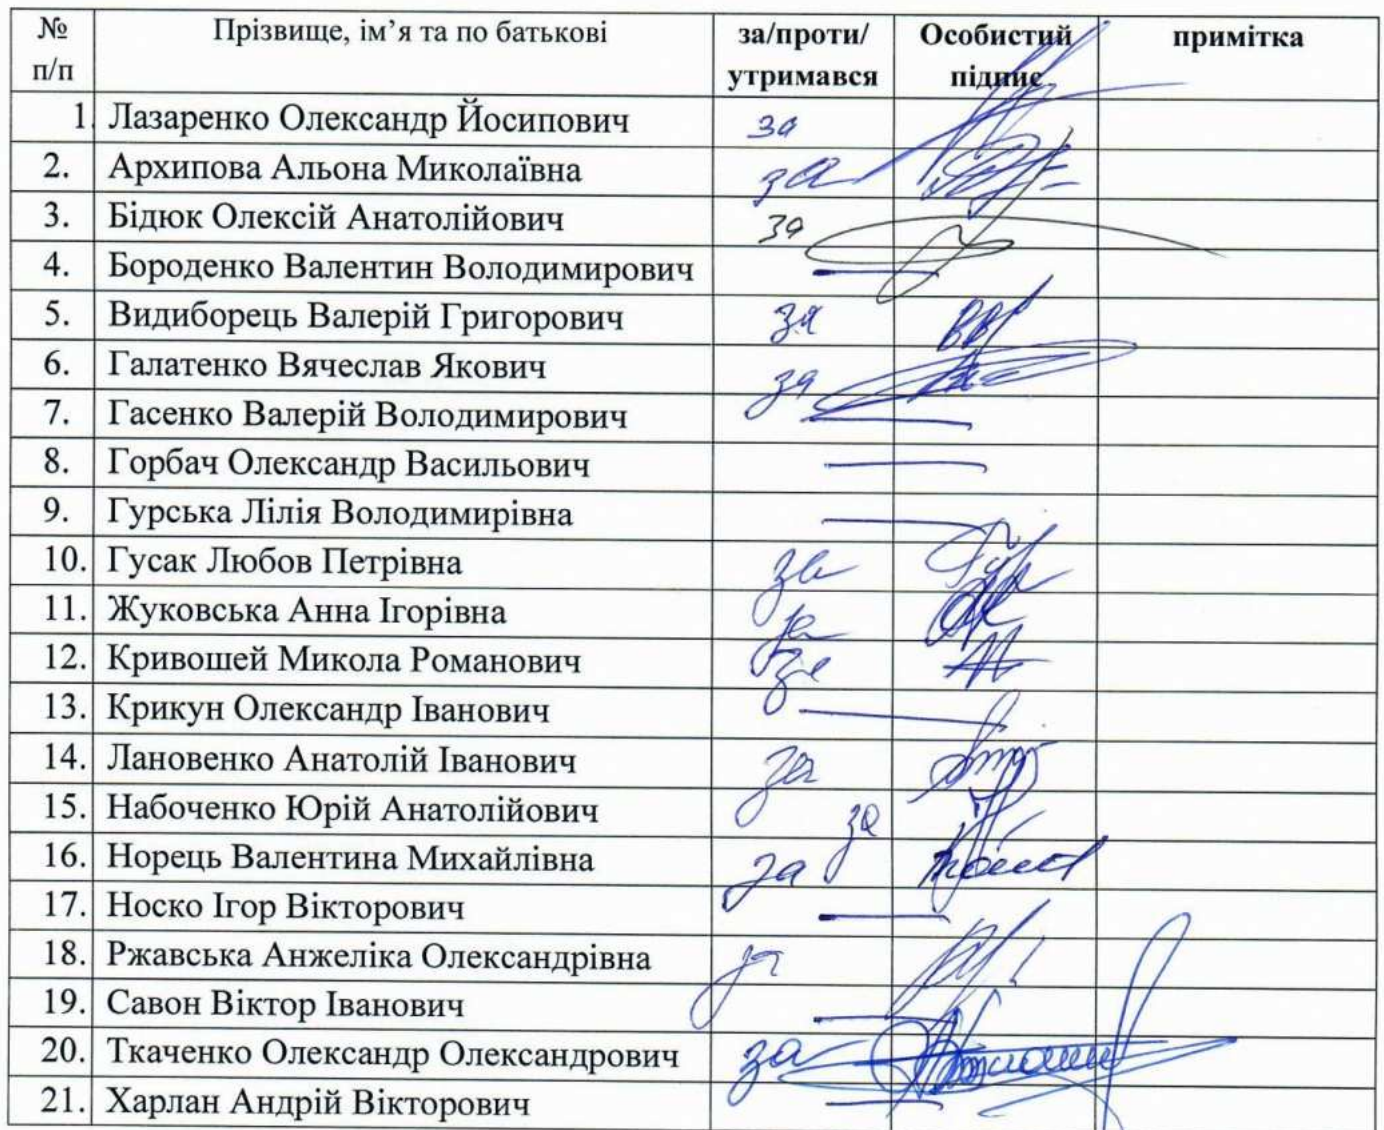 № п/п Прізвище, ім’я та по батькові за/проти/ утримався Особистий підпис примітка
1. Лазаренко Олександр Йосипович за
2. Архипова Альона Миколаївна за
3. Бідюк Олексій Анатолійович за
4. Бороденко Валентин Володимирович —
5. Видиборець Валерій Григорович за
6. Галатенко Вячеслав Якович за
7. Гасенко Валерій Володимирович —
8. Горбач Олександр Васильович —
9. Гурська Лілія Володимирівна —
10. Гусак Любов Петрівна за
11. Жуковська Анна Ігорівна за
12. Кривошей Микола Романович за
13. Крикун Олександр Іванович —
14. Лановенко Анатолій Іванович за
15. Набоченко Юрій Анатолійович за
16. Норець Валентина Михайлівна за
17. Носко Ігор Вікторович —
18. Ржавська Анжеліка Олександрівна за
19. Савон Віктор Іванович —
20. Ткаченко Олександр Олександрович за
21. Харлан Андрій Вікторович —